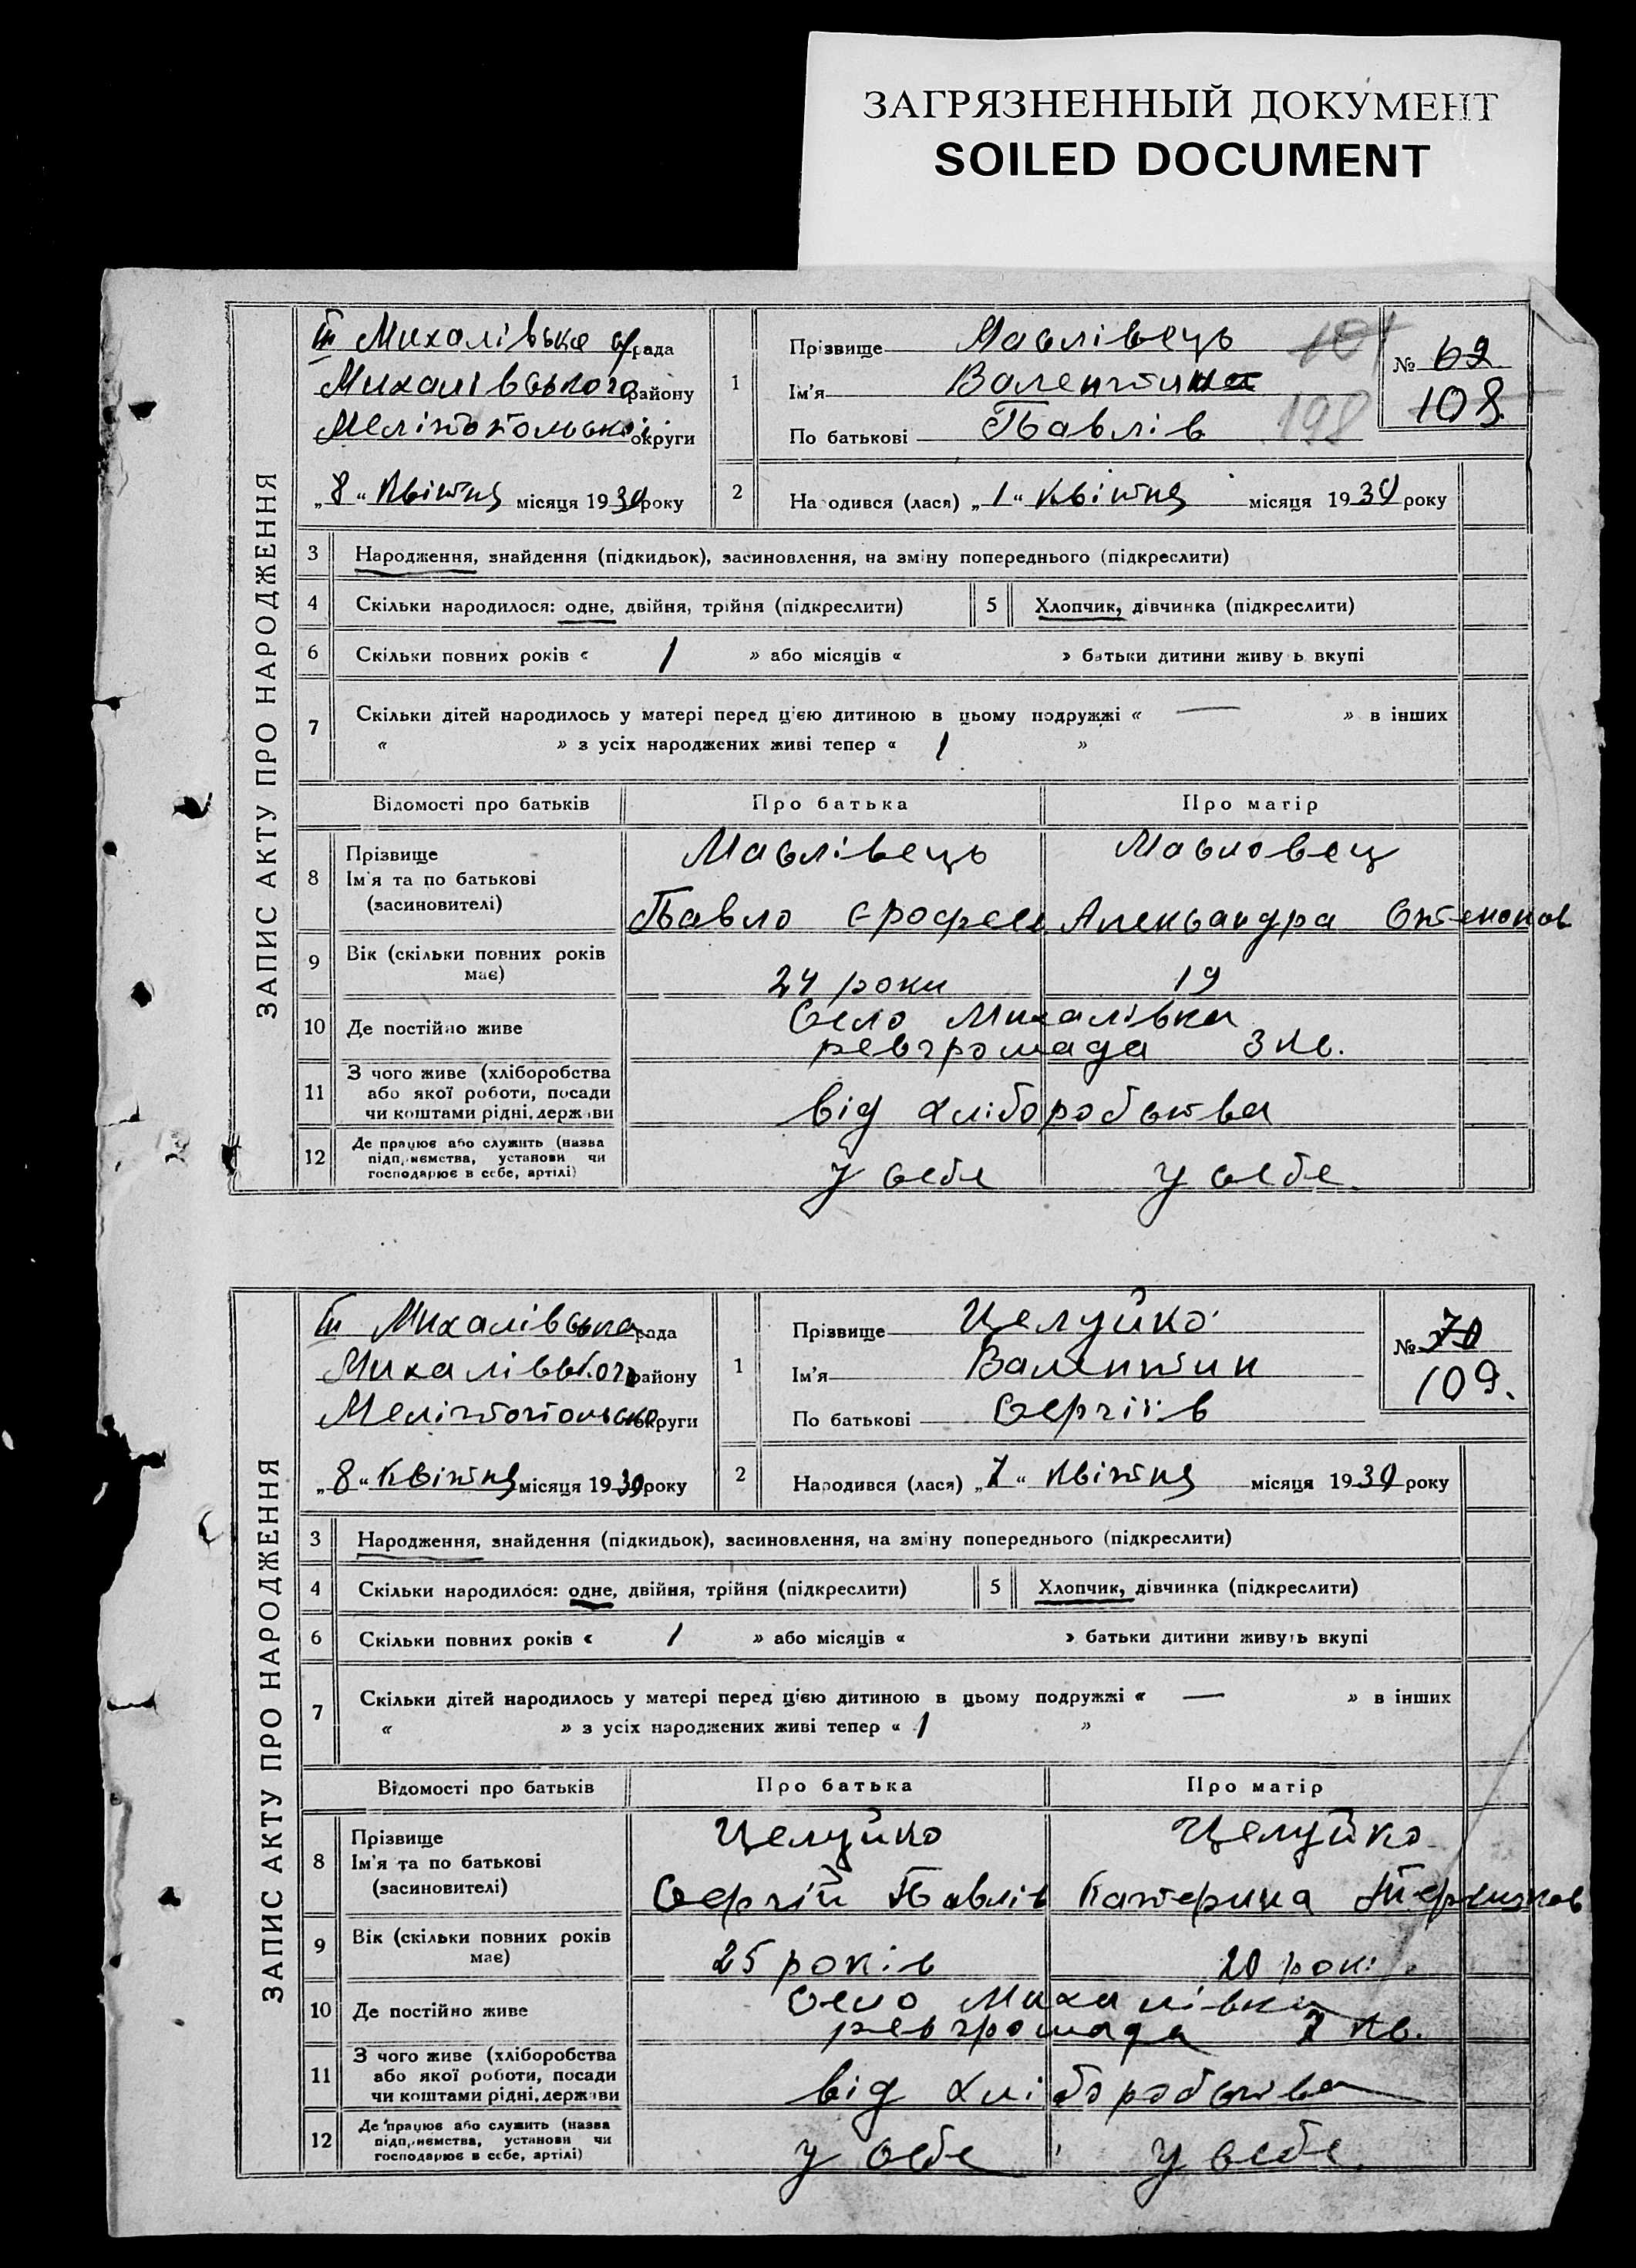 ЗАГРЯЗНЕННЫЙ ДОКУМЕНТ
SOILED DOCUMENT
ЗАПИС АКТУ ПРО НАРОДЖЕННЯ
III Михалівська с/рада
Михалівського району
Мелітопольської округи
„8“ Квітня місяця 1930 року
1
Прізвище Маслівець
Ім'я Валентин
По батькові Павлів
198
№ 69
108
2
Народився (лася) „1“ Квітня місяця 1930 року
3 Народження, знайдення (підкидьок), засиновлення, на зміну попереднього (підкреслити)
4 Скільки народилося: одне, двійня, трійня (підкреслити) 5 Хлопчик, дівчинка (підкреслити)
6 Скільки повних років « 1 » або місяців « » батьки дитини живуть вкупі
7 Скільки дітей народилось у матері перед цією дитиною в цьому подружжі « — » в інших
« » з усіх народжених живі тепер « 1 »
Відомості про батьків Про батька Про матір
8 Прізвище Маслівець Масловец
Ім'я та по батькові
(засиновителі) Павло Єрофеев Александра
9 Вік (скільки повних років
має) 24 роки 19
10 Де постійно живе Село Михалівка
ревгромада 3 кв.
11 З чого живе (хліборобства
або якої роботи, посади
чи коштами рідні, держави від хліборобьства
12 Де працює або служить (назва
підприємства, установи чи
господарює в себе, артілі) у себе у себе
ЗАПИС АКТУ ПРО НАРОДЖЕННЯ
III Михалівська рада
району
округи
„8“ Квітня місяця 1930 року
1
Прізвище Целуйко
Ім'я Валентин
По батькові Сергіїв
№ 70
109.
2
Народився (лася) „7“ квітня місяця 1930 року
3 Народження, знайдення (підкидьок), засиновлення, на зміну попереднього (підкреслити)
4 Скільки народилося: одне, двійня, трійня (підкреслити) 5 Хлопчик, дівчинка (підкреслити)
6 Скільки повних років « 1 » або місяців « » батьки дитини живуть вкупі
7 Скільки дітей народилось у матері перед цією дитиною в цьому подружжі « — » в інших
« » з усіх народжених живі тепер « 1 »
Відомості про батьків Про батька Про матір
8 Прізвище Целуйко Целуйко
Ім'я та по батькові
(засиновителі) Сергій Павлів Катерина
9 Вік (скільки повних років
має) 25 років 20 рокі
10 Де постійно живе Село Михалівка
ревгромада 7 кв.
11 З чого живе (хліборобства
або якої роботи, посади
чи коштами рідні, держави від хліборобства
12 Де працює або служить (назва
підприємства, установи чи
господарює в себе, артілі) у себе у себе.